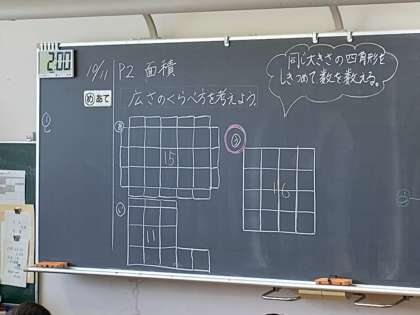 2:00
10/11
P2 面積
めあて
広さのくらべ方を考えよう。
同じ大きさの四角形を
しきつめて数を数える。
15
う
16
11